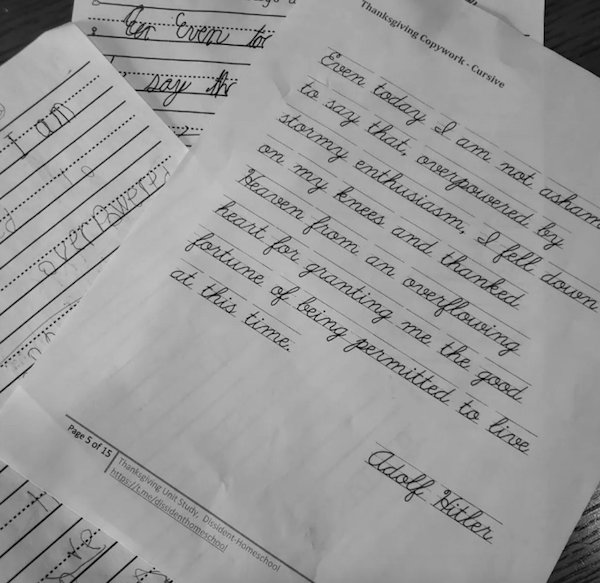 Er Even to
say th
I am
overpowere
Thanksgiving Copywork - Cursive
Even today I am not asham
to say that, overpowered by
stormy enthusiasm, I fell down
on my knees and thanked
Heaven from an overflowing
heart for granting me the good
fortune of being permitted to live
at this time.
Adolf Hitler
Page 5 of 15
Thanksgiving Unit Study, Dissident-Homeschool
https://t.me/dissidenthomeschool